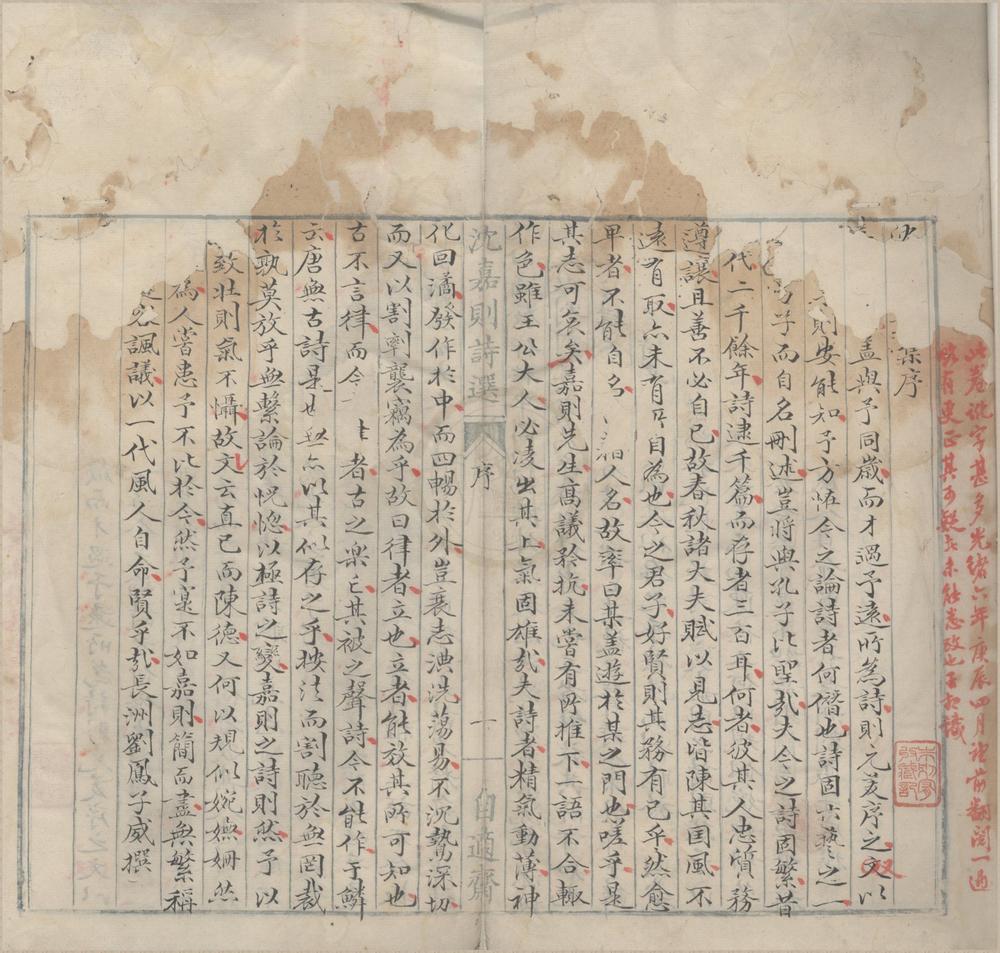 此卷訛字甚多光緒六年庚辰四月
翻閱一過
改有更正其可疑者未能悉改也
序
孟與予同歲而才過予遠所為詩則元美序之文以
則安能知予方怪今之論詩者何僭也詩固六藝之一
子而自名刪述豈將與孔子比聖哉夫今之詩固繁昔
代二千餘年詩逮千篇而存者三百耳何者彼其人忠質務
遵讓且善不必自已故春秋諸大夫賦以見志皆陳其国風不
遠有取亦未有自為也今之君子好賢則其務有已乎然愈
卑者不能自名人名故率曰某盖遊於某之門也嗟乎是
其志可矣矣嘉則先生高議矜抗未嘗有所推下一語不合輙
作色雖王公大人必凌出其上氣固雄哉夫詩者精氣動薄神
沈嘉則詩選
序
一
自適齋
化回潏發作於中而四暢於外豈袤志淟涊蕩易不沉鷙深切
而又以割剽襲竊為乎故曰律者立也立者能放其所可知也
古不言律而今者古之樂其被之聲詩今不能作于鱗
云唐無古詩是亦以其似存之乎按法而割聽於無罔裁
於孰莫放乎無繫論於怳惚以極詩之變嘉則之詩則然予以
致壮則氣不懾故文云直已而陳德又何以規似婉嫵姍然
為人嘗患予不比於今然予寔不如嘉則簡而盡無繁稱
諷議以一代風人自命賢乎哉長洲劉鳳子威撰